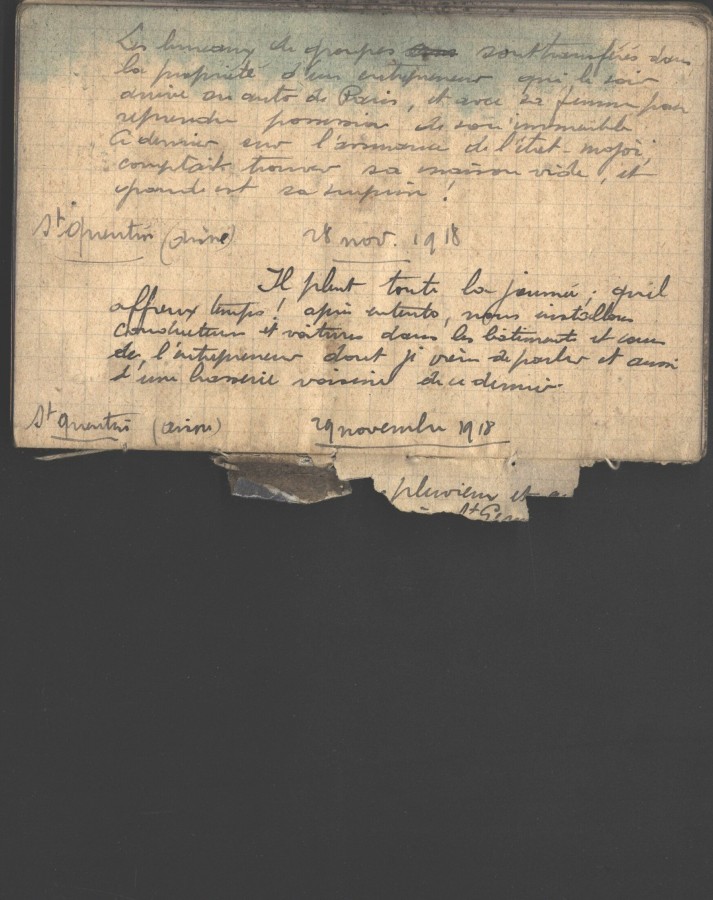 Les bureaux de groupes sont transférés dans
la propriété d'un entrepreneur qui le soir
arrive en auto de Paris, et avec sa femme pour
reprendre possession de son immeuble
Ce dernier sur l'assurance de l'état-major,
comptait trouver sa maison vide, et
grande est sa surprise !
St Quentin (aisne) 28 nov. 1918
Il pleut toute la journée ; quel
affreux temps ! après entente, nous installons
conducteurs et voitures dans les bâtiments et cours
de l'entrepreneur dont je viens de parler et aussi
d'une brasserie voisine de ce dernier.
St Quentin (aisne) 29 novembre 1918
pluvieux et
St